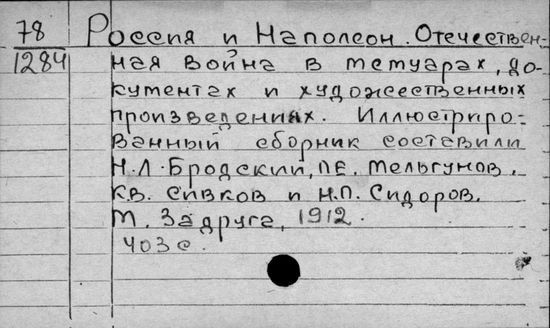 78 Россия и Наполеон. Отечествен-
1284 ная война в мемуарах, до-
кументах и художественных
произведениях. Иллюстриро-
ванный сборник составили
Н.Л. Бродский, П.Е. Мельгунов,
К.В. Сивков и Н.П. Сидоров.
М. Задруга, 1912.
403 с.